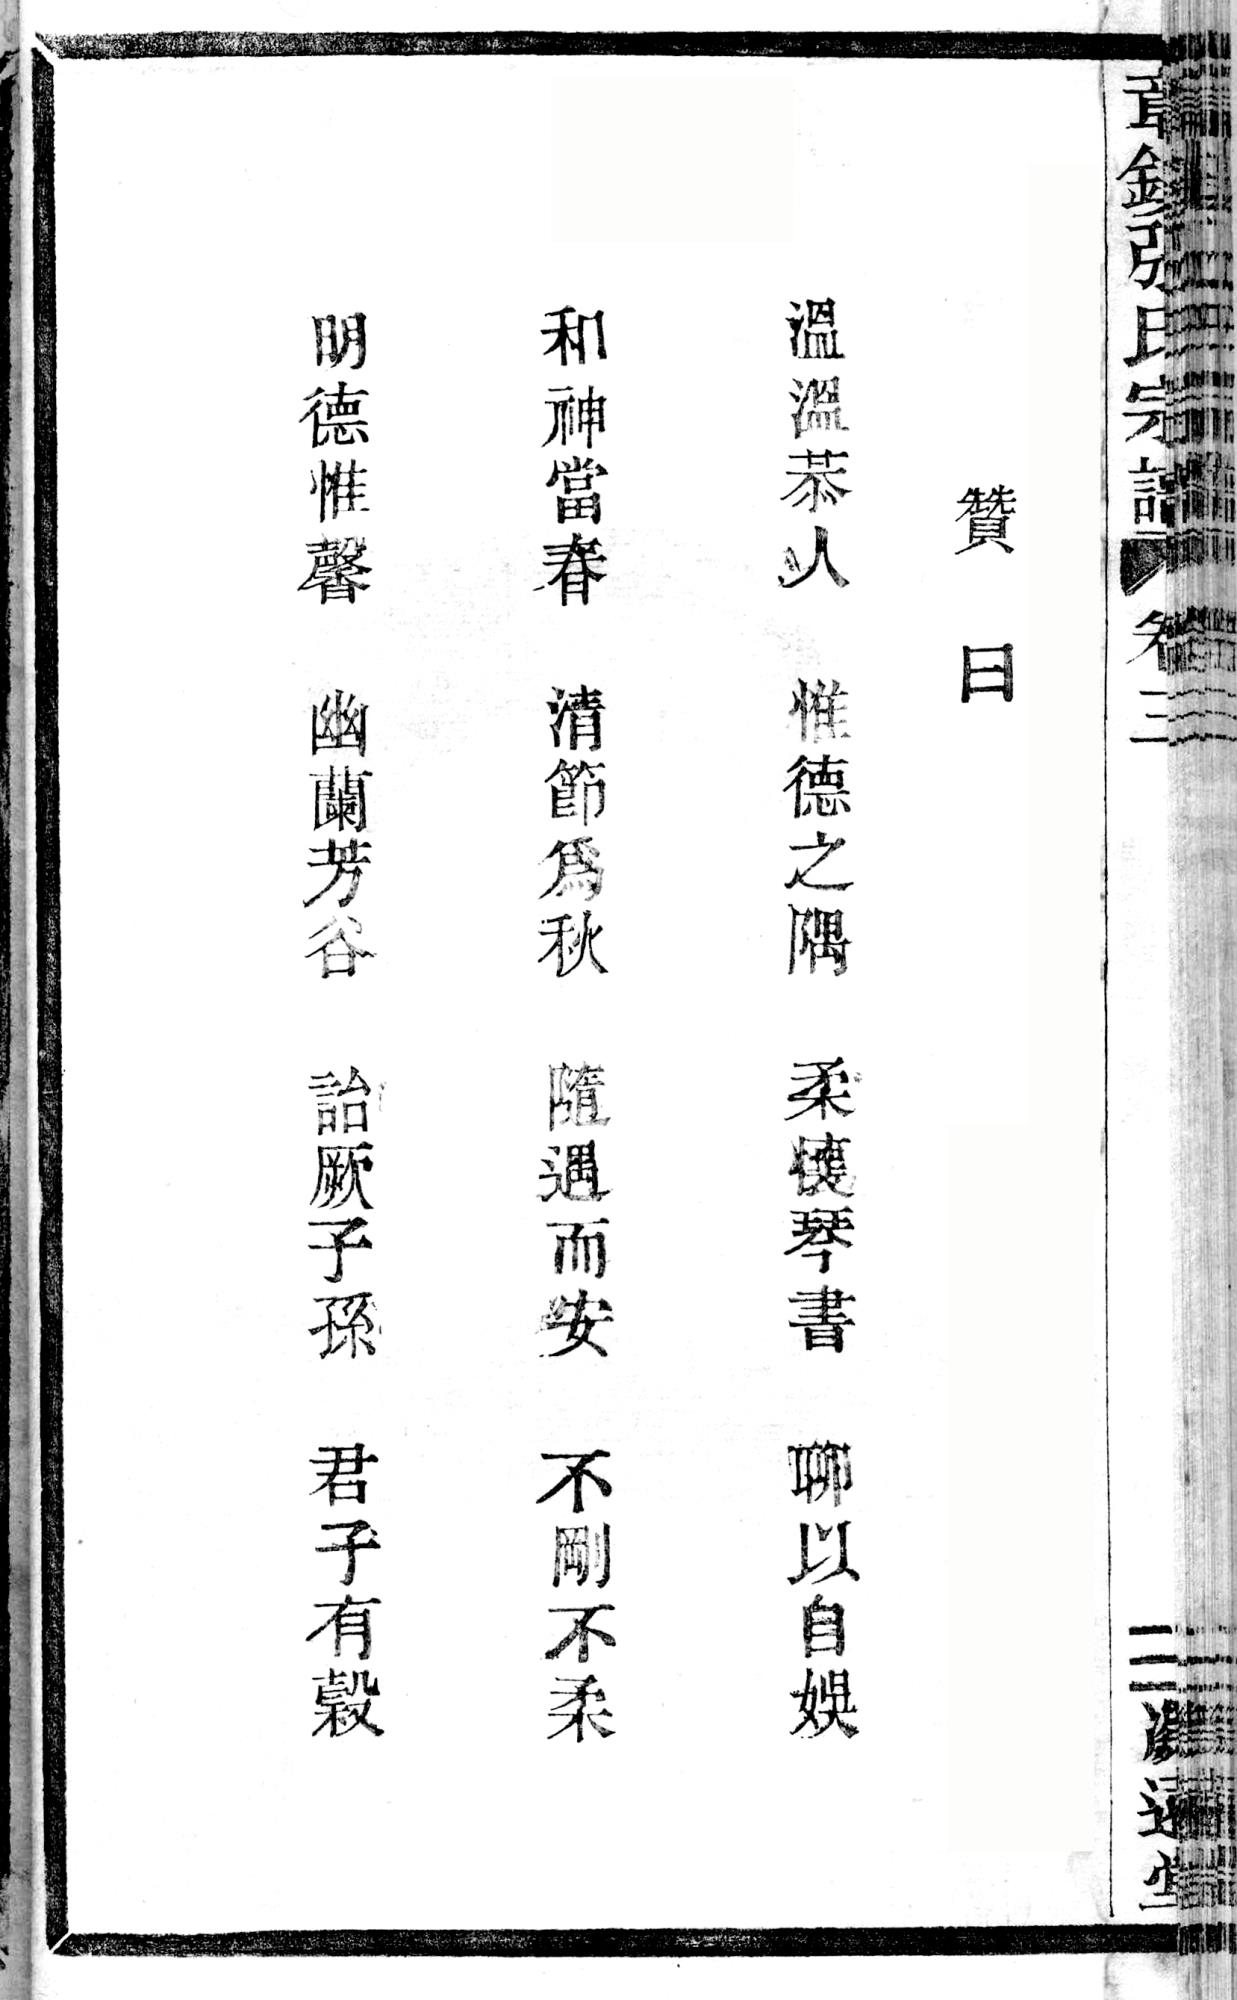 張氏宗譜 卷三
贊曰
溫溫恭人 惟德之隅 柔懷琴書 聊以自娛
和神當春 清節爲秋 隨遇而安 不剛不柔
明德惟馨 幽蘭芳谷 詒厥子孫 君子有穀